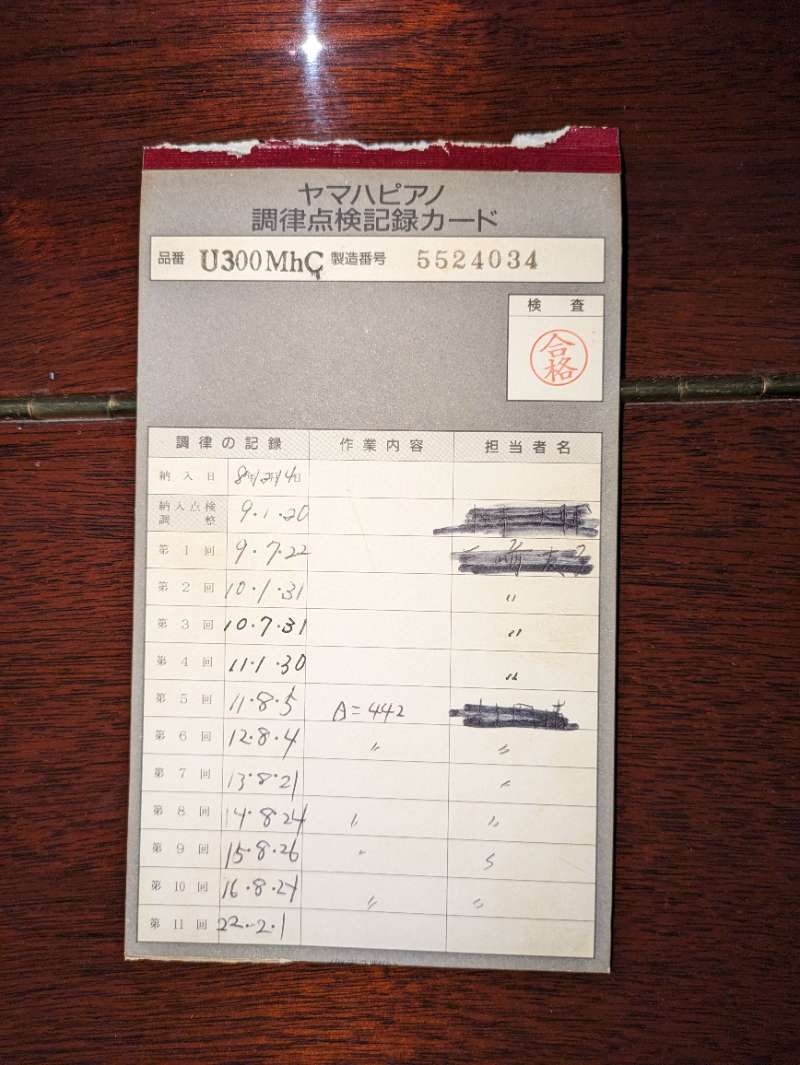 ヤマハピアノ
調律点検記録カード
品番 U300MhC 製造番号 5524034
検査
合格
調律の記録 作業内容 担当者名
納入日 8年12月14日
納入点検調整 9・1・20
第1回 9・7・22
第2回 10・1・31 〃
第3回 10・7・31 〃
第4回 11・1・30 〃
第5回 11・8・5 A=442
第6回 12・8・4 〃 〃
第7回 13・8・21 〃
第8回 14・8・24 〃 〃
第9回 15・8・26 〃 〃
第10回 16・8・21 〃 〃
第11回 22・2・1